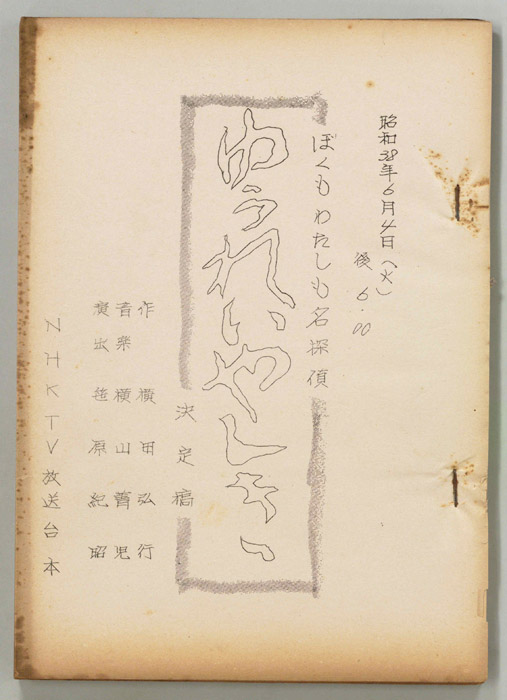 昭和38年6月4日(火)
後 6.00
ぼくもわたしも名探偵
ゆうれいやしき
決定稿
作 横田弘行
音楽 横山菁児
演出 笹原紀昭
NHKTV放送台本